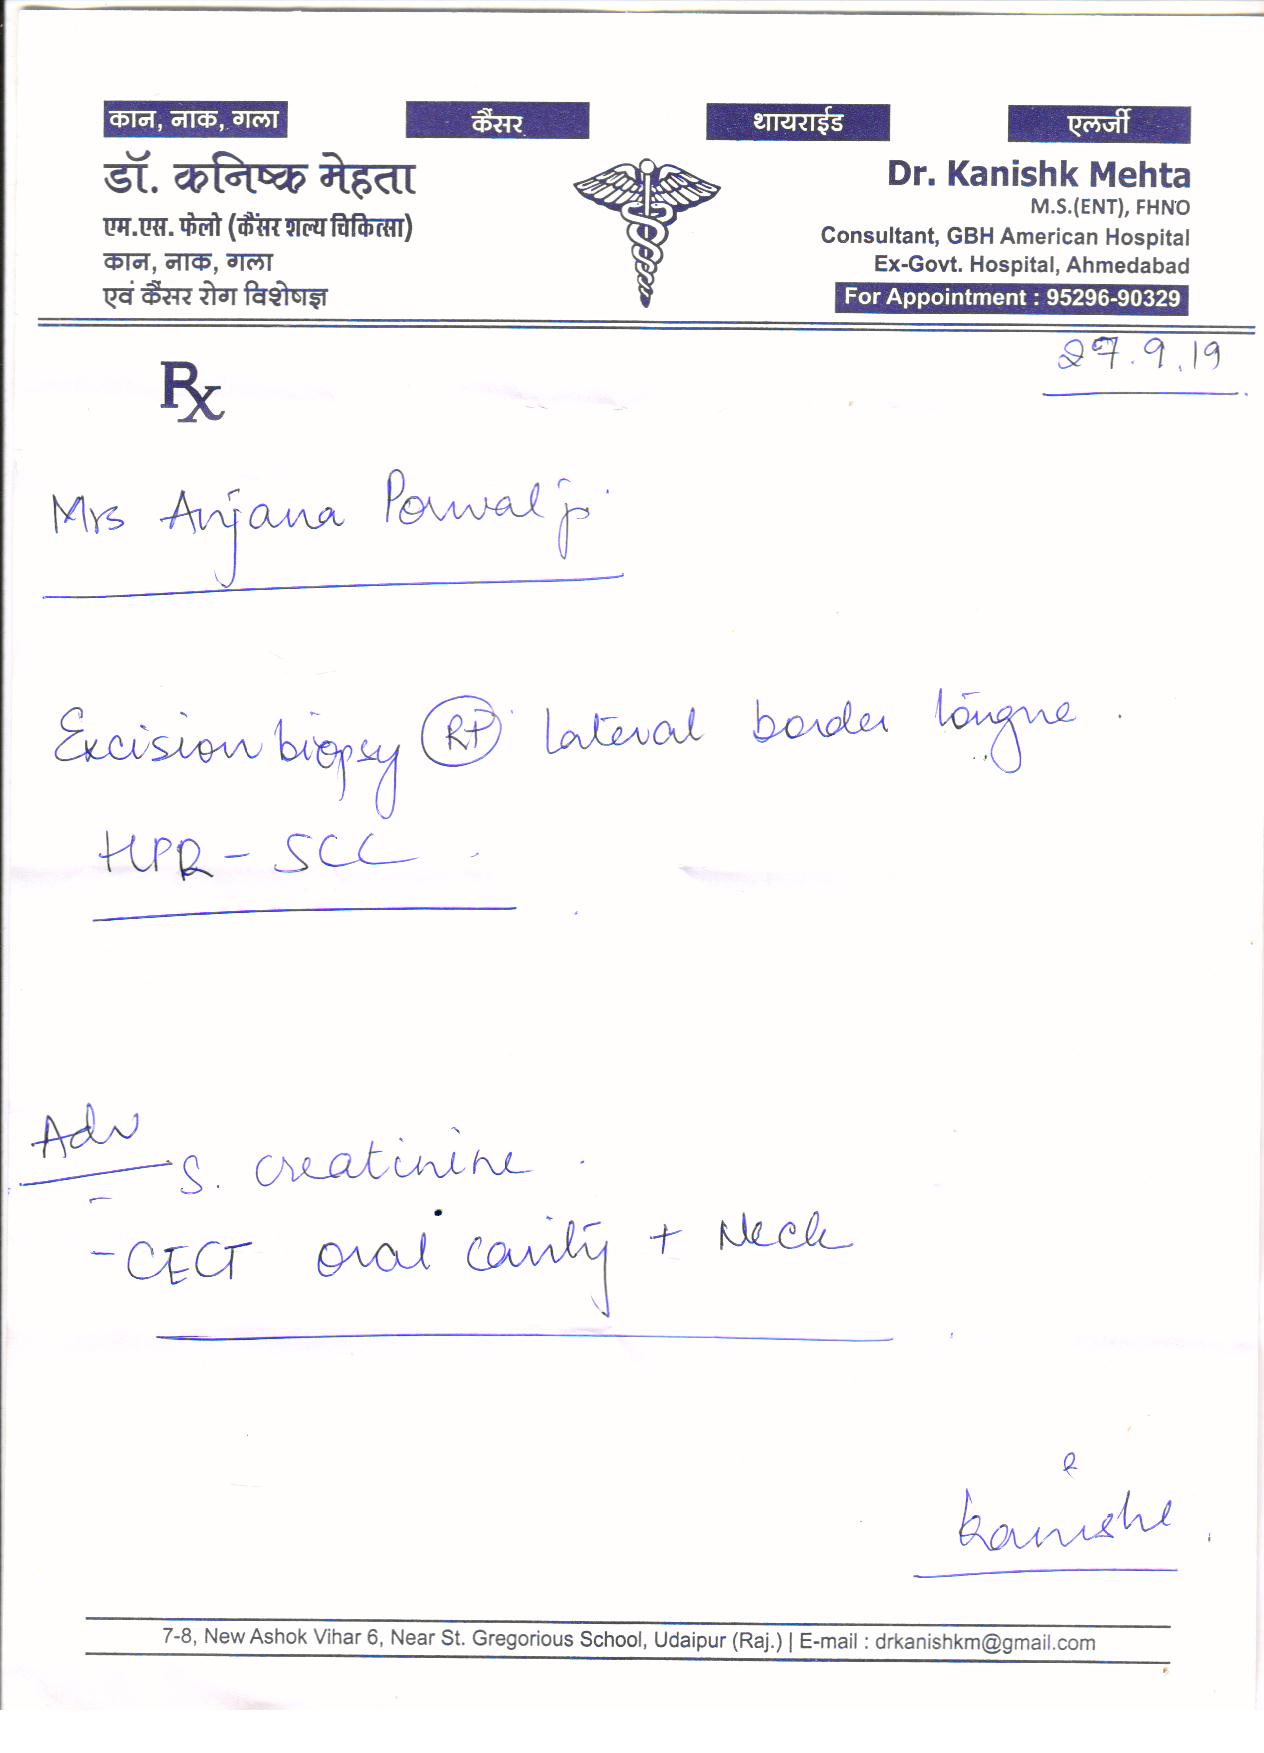 कान, नाक, गला
कैंसर
थायराईड
एलर्जी
डॉ. कनिष्क मेहता
एम.एस. फेलो (कैंसर शल्य चिकित्सा)
कान, नाक, गला
एवं कैंसर रोग विशेषज्ञ
Dr. Kanishk Mehta
M.S.(ENT), FHNO
Consultant, GBH American Hospital
Ex-Govt. Hospital, Ahmedabad
For Appointment : 95296-90329
27.9.19
Rx
Mrs Anjana Porwal ji
Excision biopsy Rt lateral border tongue
HPR - SCC
Adv
S. creatinine
- CECT oral cavity + Neck
Kanishk
7-8, New Ashok Vihar 6, Near St. Gregorious School, Udaipur (Raj.) | E-mail : drkanishkm@gmail.com